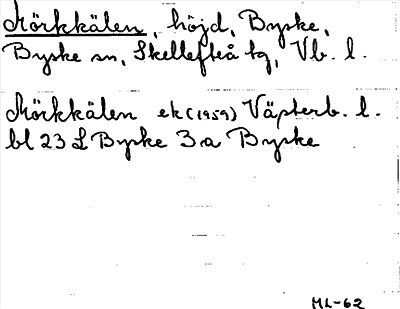 Mörkkälen, höjd, Byske,
Byske sn, Skellefteå tg, Vb. l.
Mörkkälen ek (1959) Västerb. l.
bl 23 L Byske 3a Byske
ML-62